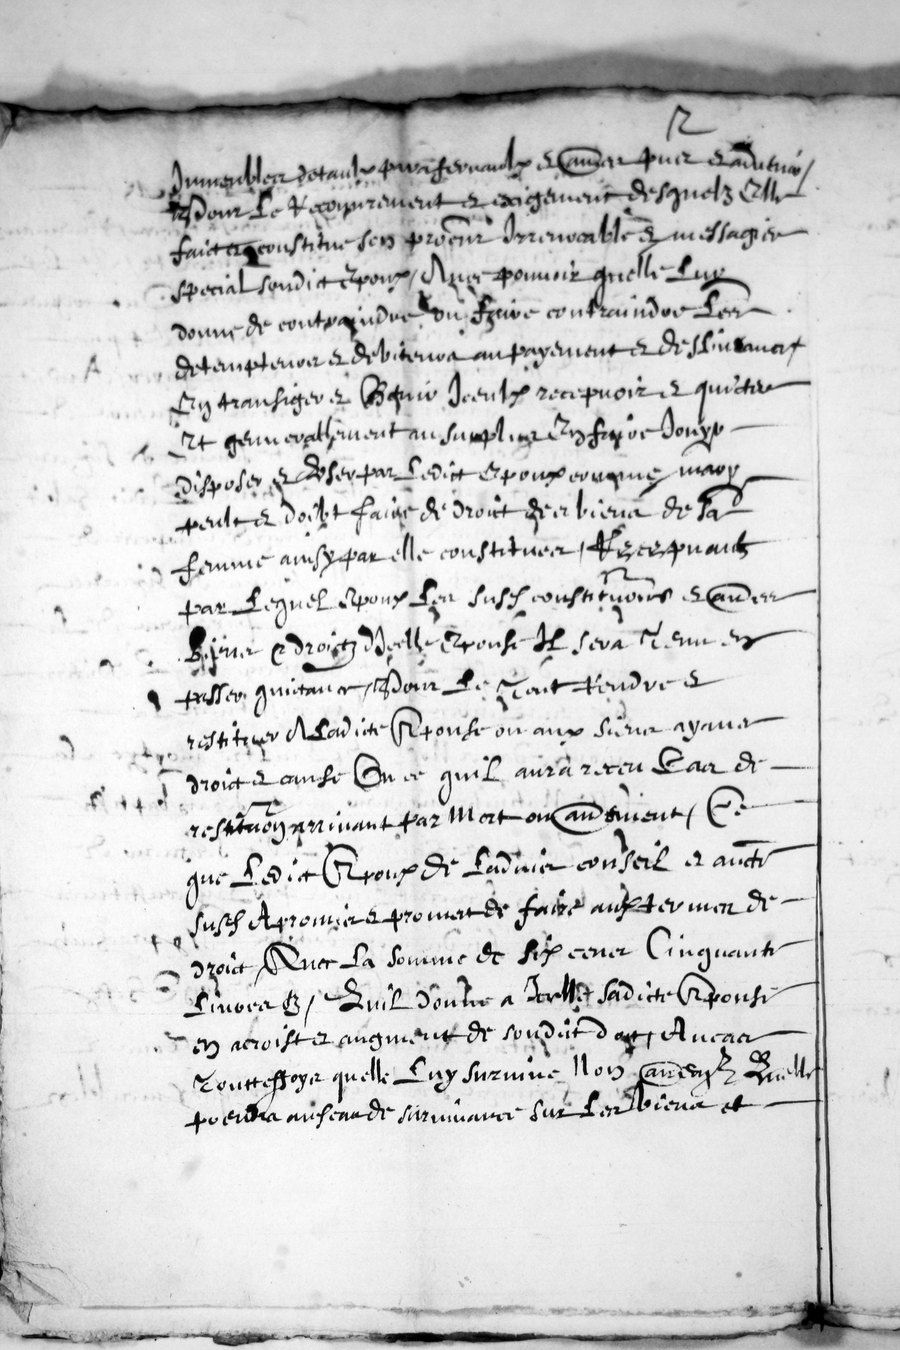 2
Immeubles dotaulx parafernaulx et aultres pnts et advenir /
Pour Le Recouvrement et exigement desquelz Elle
faict et constitue son procur Irrevocable et messagier
special sondict Epoux / Avec pouvoir quelle Luy
donne de contraindre ou faire contraindre Les
detempteurs et debiteurs au payement et deslivrance /
En transiger et Iceulx recepvoir et quicter
Et generallement au surplus En faire Jouyr
disposer et User par Ledict Epoux comme mary
peult et doibt faire de droict des biens de sa
femme ainsy par elle constitues / Recepvant
par Lequel Epoux Les susd constitutions et aultres
Biens et droictz dIcelle Epouse Il sera Tenu en
passer quitance / Pour Le Tout Rendre et
restituer A Ladicte Epouse ou aux siens ayans
droict et cause En ce quil aura receu Cas de
restitution arrivant par Mort ou aultrement / Et
que Ledict Epoux de Ladvis conseil et auctte
susd A promis et promet de faire aux termes de
droict / Avec La somme de six cens Cinquante
Livres / Quil donne a Icelle sadicte Epouse
en acroist et augment de sondict dot / En cas
Touttesfoys quelle Luy survive Non aultrem Quelle
prendra aud cas de survivance sur Les biens et